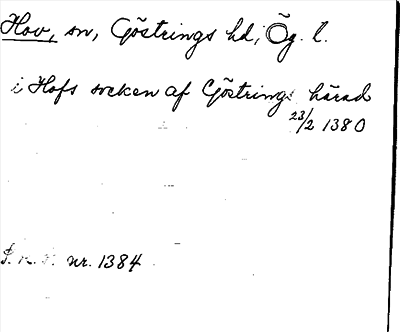 Hov, sn, Göstrings hd, Ög. l.
i Hofs socken af Göstrings härad
23/2 1380
nr. 1384